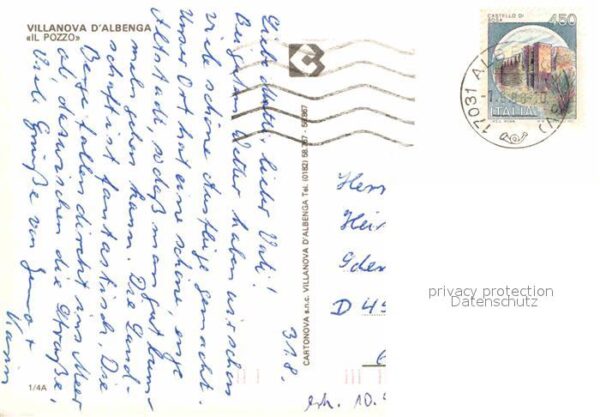 VILLANOVA D'ALBENGA
«IL POZZO»
31.8.
Liebe Mutti, lieber Vati!
Bei gutem Wetter haben wir schon
viele schöne Ausflüge gemacht.
Unser Ort hat eine schöne, enge
Altstadt, sodaß man gut bum-
meln gehen kann. Die Land-
schaft ist fantastisch. Die
Berge fallen direkt ins Meer
ab, dazwischen die Straße.
Viele Grüße von
Karin
1/4A
CARTONOVA s.n.c. VILLANOVA D'ALBENGA Tel. (0182) 58.767 - 58.867
CASTELLO DI
450
ITALIA
17031
Herr
Hei
D 49
erh. 10.
privacy protection
Datenschutz